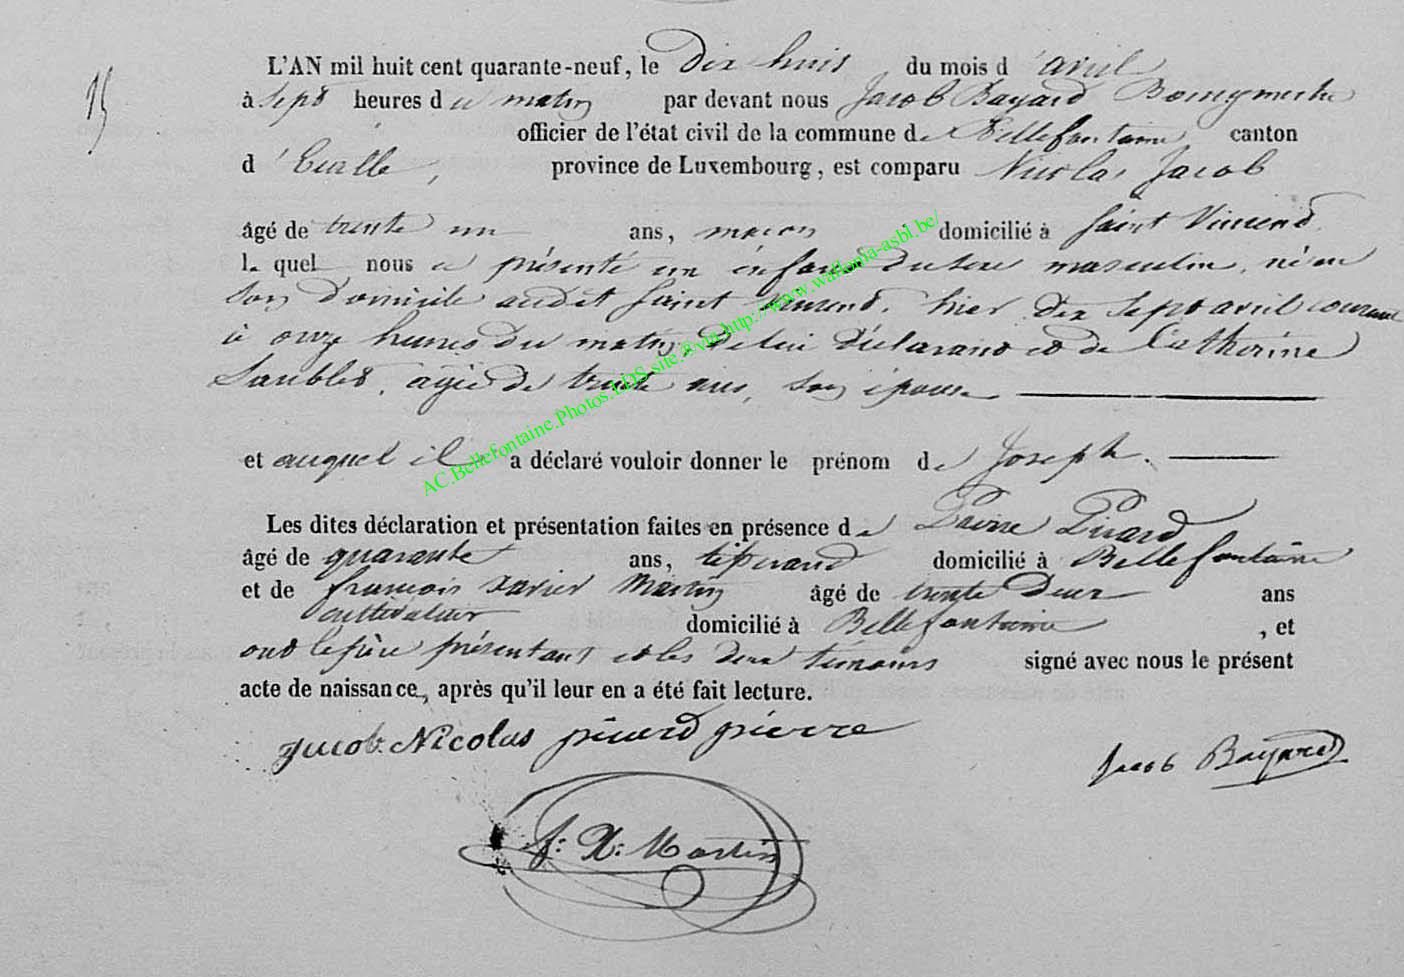 15
L'AN mil huit cent quarante-neuf, le Dix huit du mois d'avril
à Sept heures du matin par devant nous Jacob Bayard Bourgmestre
officier de l'état civil de la commune de Bellefontaine canton
d'Etalle, province de Luxembourg, est comparu Nicolas Jacob
âgé de trente un ans, maçon domicilié à Saint Vincent
lequel nous a présenté un enfant du sexe masculin, né en
son domicile audit Saint Vincent, hier dix sept avril courant
à onze heures du matin, de lui déclarant et de Catherine
âgée de trente ans, son épouse
et auquel il a déclaré vouloir donner le prénom de Joseph.
Les dites déclaration et présentation faites en présence de Pierre Picard
âgé de quarante ans, tisserand domicilié à Bellefontaine
et de françois xavier Martin âgé de trente Deux ans
cultivateur domicilié à Bellefontaine, et
ont le père présentant et les deux témoins signé avec nous le présent
acte de naissance, après qu'il leur en a été fait lecture.
jacob Nicolas picard pierre
Jacob Bayard
f: X: Martin
AC.Bellefontaine.Photos.LDS.site.®via.http://www.wallonia-asbl.be/